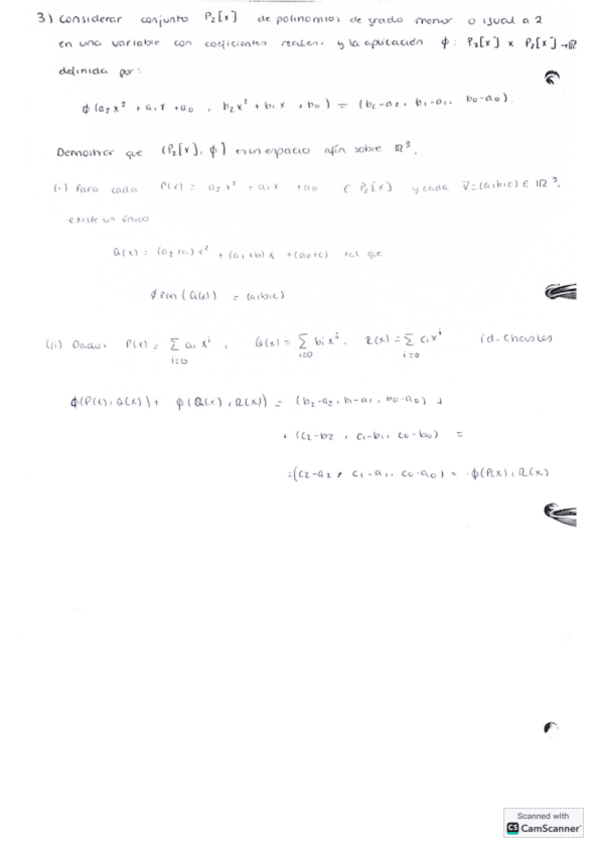 3) Considerar conjunto P₂[x] de polinomios de grado menor o igual a 2
en una variable con coeficientes reales y la aplicación ϕ: P₂[x] x P₂[x] →ℝ
definida por:
ϕ(a₂x² + a₁x + a₀, b₂x² + b₁x + b₀) = (b₂-a₂, b₁-a₁, b₀-a₀).
Demostrar que (P₂[x], ϕ) es un espacio afín sobre ℝ³.
(i) Para cada P(x) = a₂x² + a₁x + a₀ ∈ P₂[x] y cada V=(a,b,c) ∈ ℝ³,
existe un único
Q(x) = (a₂+a)x² + (a₁+b)x + (a₀+c) tal que
(Q(x)) = (a,b,c)
(ii) Dados P(x) = Σ aᵢxⁱ, Q(x) = Σ bᵢxⁱ. R(x) = Σ cᵢxⁱ id. Chasles
i=0 i=0 i=0
ϕ(P(x), Q(x)) + ϕ(Q(x), R(x)) = (b₂-a₂, b₁-a₁, b₀-a₀) +
+ (c₂-b₂, c₁-b₁, c₀-b₀) =
=(c₂-a₂, c₁-a₁, c₀-a₀) = ϕ(P(x), R(x)
Scanned with
CS CamScanner